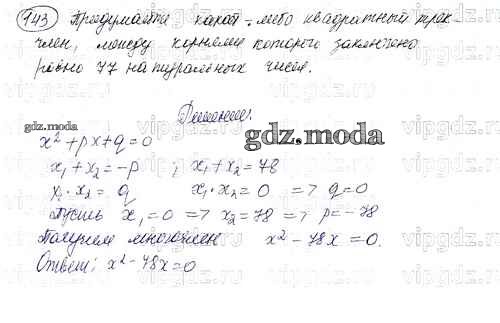 143 Придумайте какой-либо квадратный трех-
член, между корнями которого заключено
равно 77 натуральных чисел.
Решение:
gdz.moda
gdz.moda
x² + px + q = 0
x₁ + x₂ = -p ; x₁ + x₂ = 78
x₁ · x₂ = q x₁ · x₂ = 0 => q = 0
Пусть x₁ = 0 => x₂ = 78 => p = -78
Получаем многочлен x² - 78x = 0.
Ответ: x² - 78x = 0